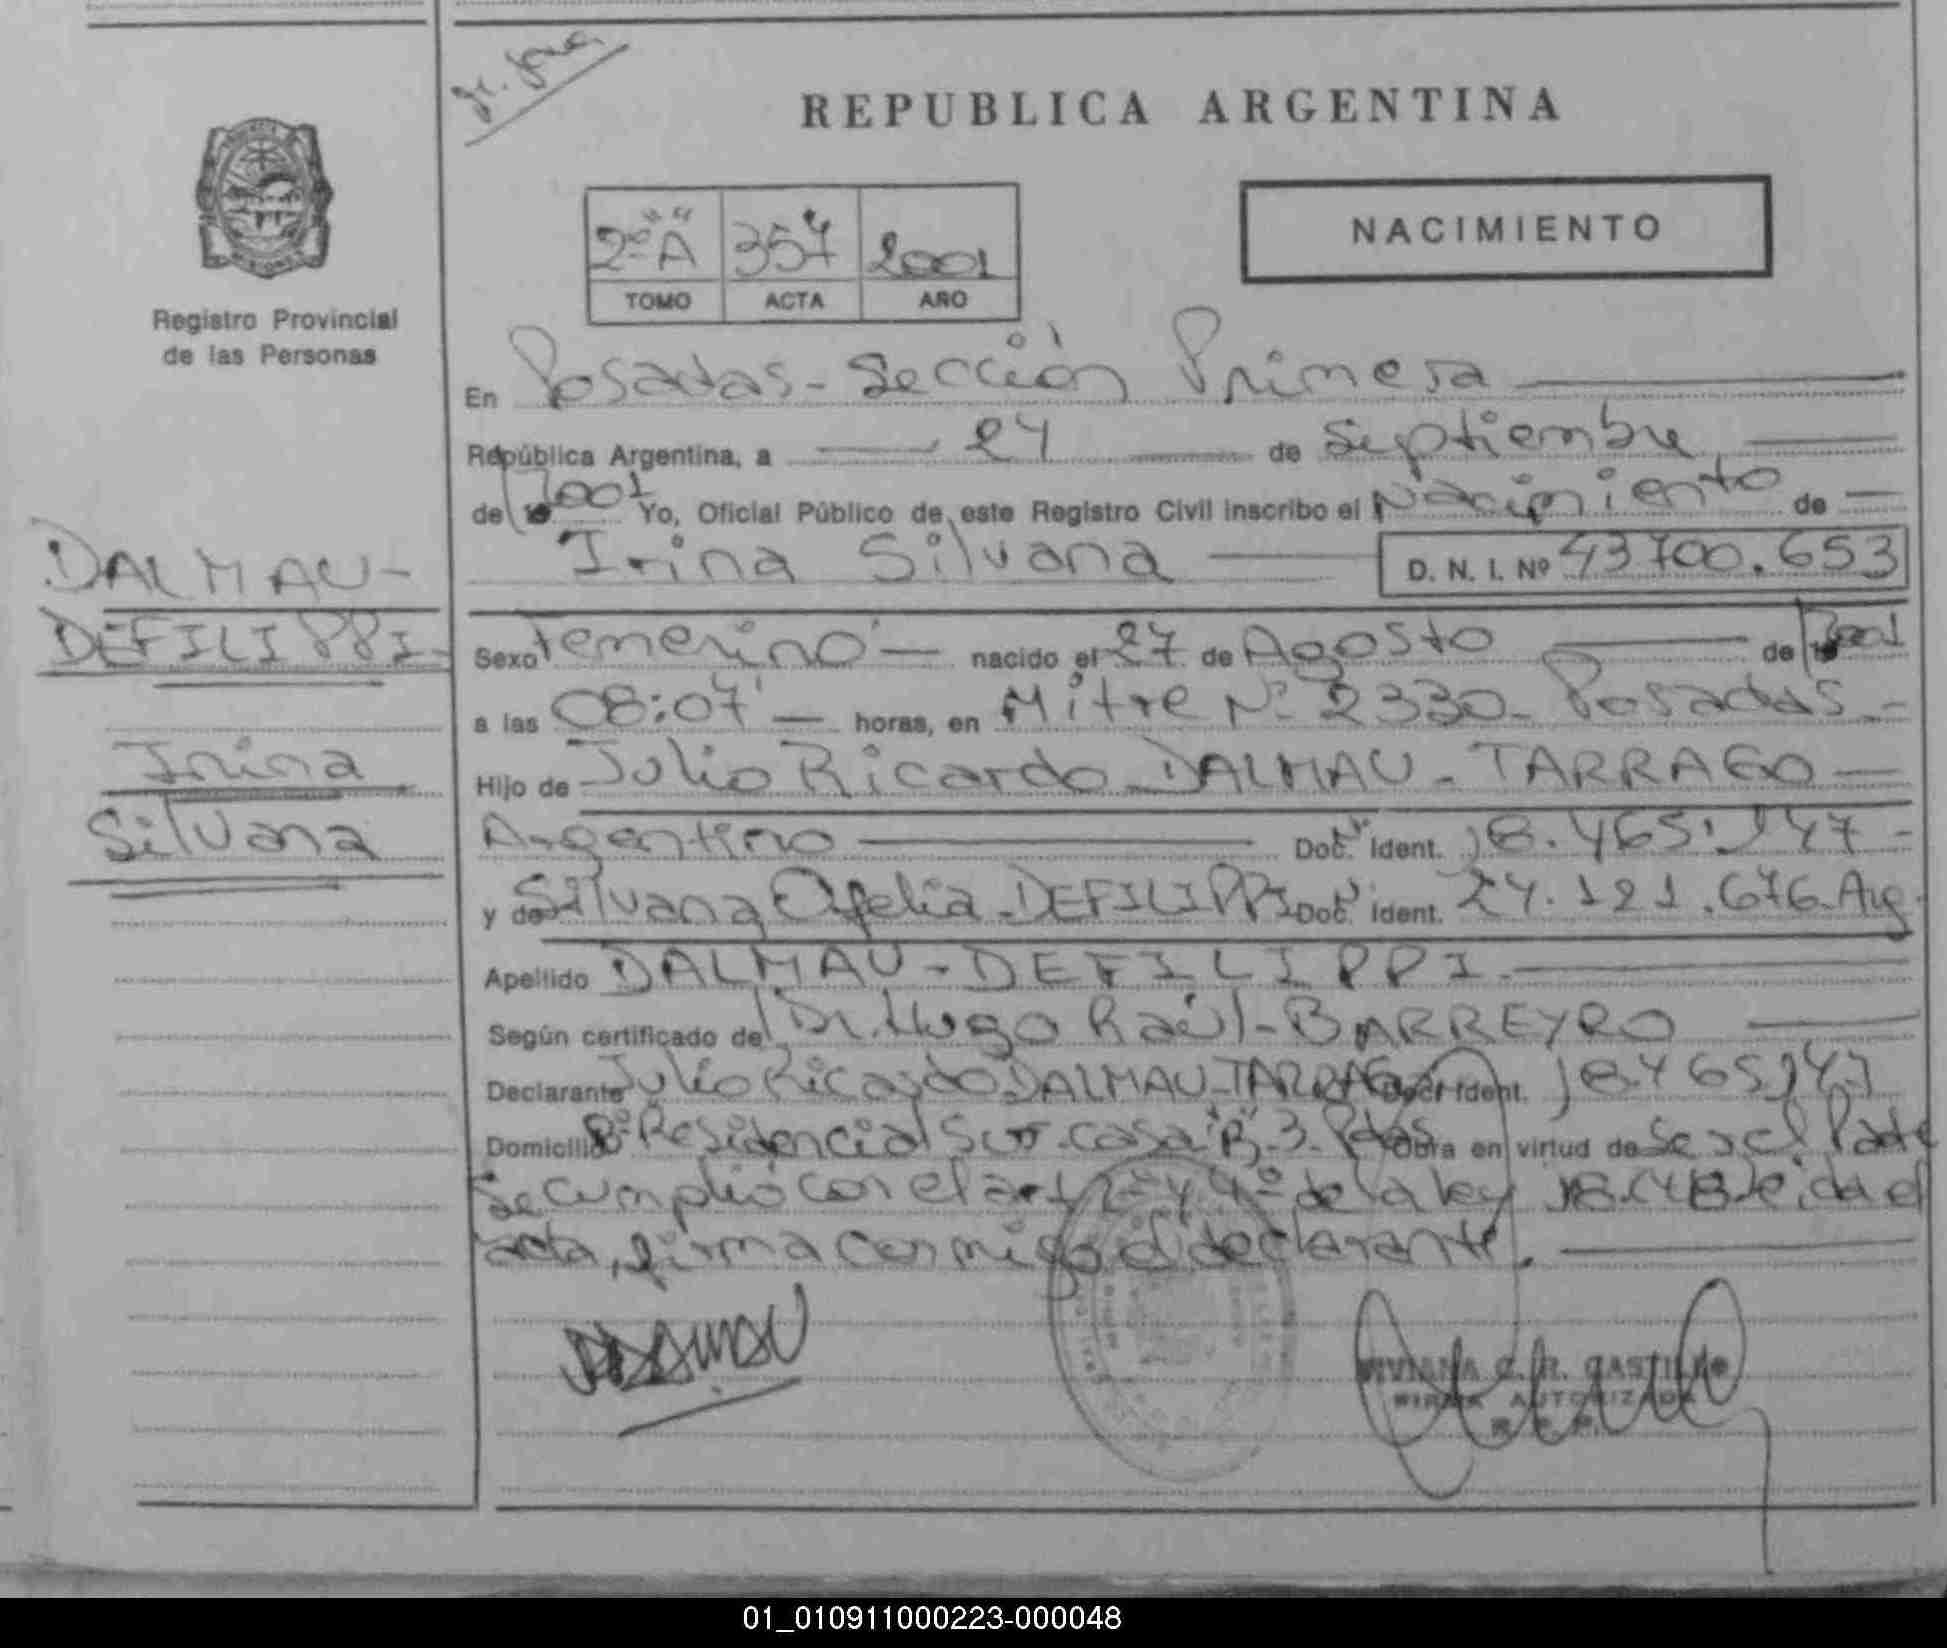 REPUBLICA ARGENTINA
Registro Provincial
de las Personas
2º "A" 357 2001
TOMO ACTA AÑO
NACIMIENTO
DALMAU-
DEFILIPPI-
Irina
Silvana
En Posadas - Sección Primera
República Argentina, a 24 de Septiembre
de 2001 Yo, Oficial Público de este Registro Civil inscribo el Nacimiento de
Irina Silvana D. N. I. Nº 43700.653
Sexo Femenino - nacido el 27 de Agosto de 2001
a las 08:07' - horas, en Mitre Nº 2330 - Posadas -
Hijo de Julio Ricardo DALMAU - TARRAGO -
Argentino Doc. Ident. 18.465.147 -
y de Silvana Ofelia - DEFILIPPI Doc. Ident. 24.121.676 Arg.
Apellido DALMAU - DEFILIPPI -
Según certificado de Dr. Hugo Raúl - BARREYRO
Declarante Julio Ricardo DALMAU - TARRAGO Doc. Ident. 18465147
Domicilio Bº Residencial Sur - casa "B" 3 - Pdas Obra en virtud de Ser el Padre
Se cumplió con el art 2º y 4º de la ley 18.248 leida el
acta, firma conmigo el declarante.
VIVIANA C. R. CASTILLO
FIRMA AUTORIZADA
R. P. P.
01_010911000223-000048